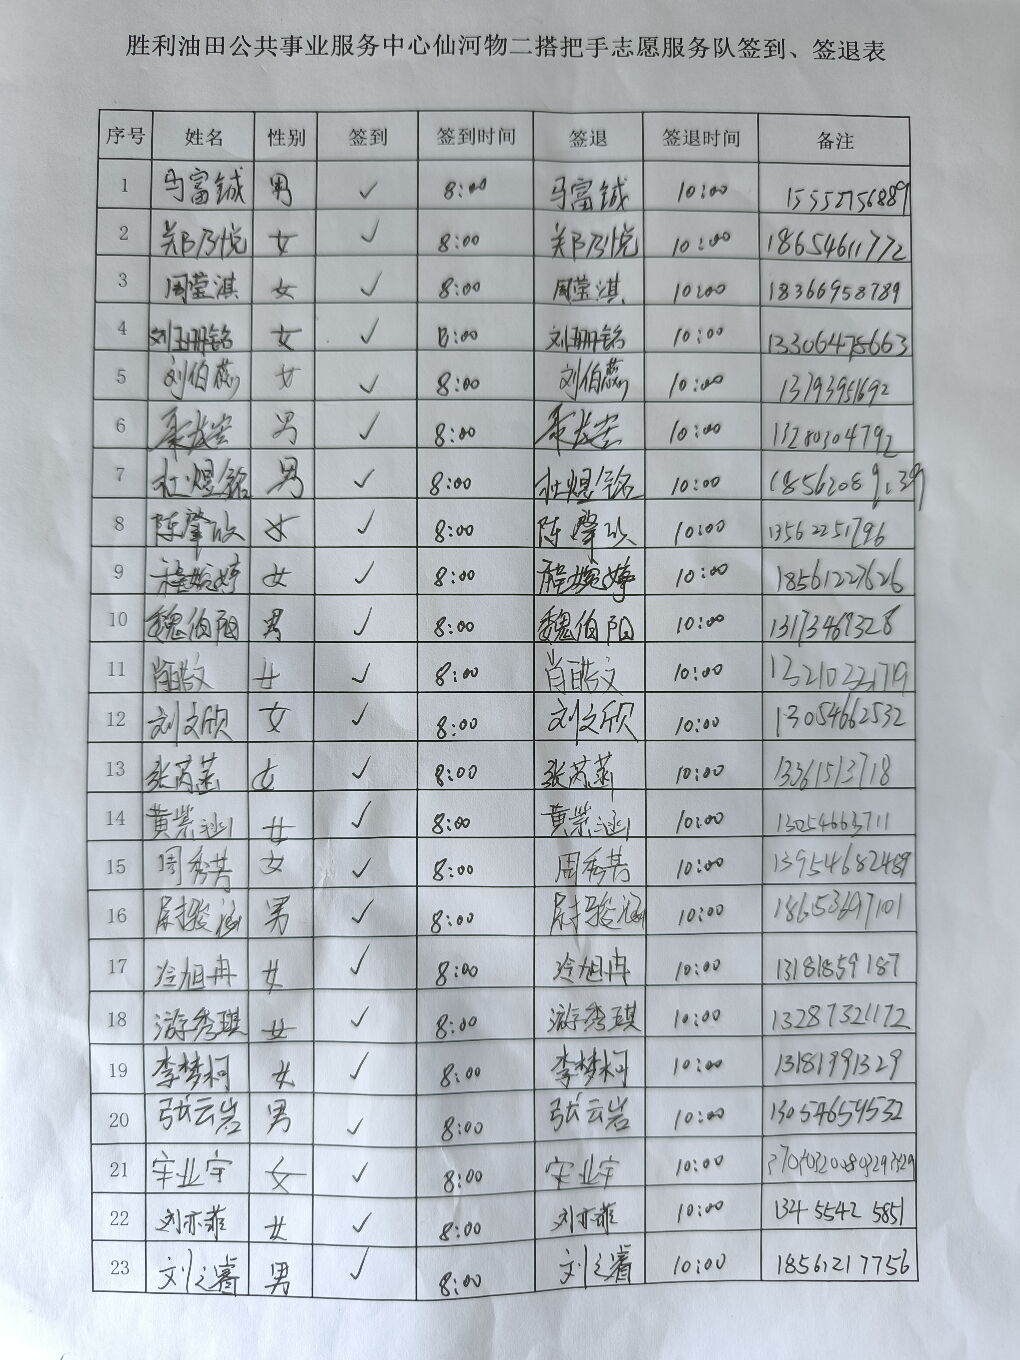 胜利油田公共事业服务中心仙河物二搭把手志愿服务队签到、签退表
序号 姓名 性别 签到 签到时间 签退 签退时间 备注
1 马富铖 男 ✓ 8:00 马富铖 10:00 15552756889
2 郑乃悦 女 ✓ 8:00 郑乃悦 10:00 18654611772
3 周莹淇 女 ✓ 8:00 周莹淇 10:00 18366958789
4 刘珊铭 女 ✓ 8:00 刘珊铭 10:00 13306475663
5 刘伯蕊 女 ✓ 8:00 刘伯蕊 10:00 13793951692
6 男 ✓ 8:00 10:00 13280304792
7 杜煜铭 男 ✓ 8:00 杜煜铭 10:00
8 陈肇 女 ✓ 8:00 陈肇 10:00 13562251796
9 程婉婷 女 ✓ 8:00 程婉婷 10:00 18561227626
10 魏伯阳 男 ✓ 8:00 魏伯阳 10:00 13173467328
11 肖皓文 女 ✓ 8:00 肖皓文 10:00
12 刘文欣 女 ✓ 8:00 刘文欣 10:00 13054662532
13 张芮菡 女 ✓ 8:00 张芮菡 10:00 13361513718
14 黄紫涵 女 ✓ 8:00 黄紫涵 10:00 13054663711
15 周秀芳 女 ✓ 8:00 周秀芳 10:00 13954682489
16 尉骏涵 男 ✓ 8:00 尉骏涵 10:00 18653697101
17 冷旭冉 女 ✓ 8:00 冷旭冉 10:00 13181859187
18 游秀琪 女 ✓ 8:00 游秀琪 10:00 13287321172
19 李梦柯 女 ✓ 8:00 李梦柯 10:00 13181991329
20 张云岩 男 ✓ 8:00 张云岩 10:00 13054654532
21 牢业宇 女 ✓ 8:00 牢业宇 10:00
22 刘亦菲 女 ✓ 8:00 刘亦菲 10:00 1345542 5851
23 刘之睿 男 ✓ 8:00 刘之睿 10:00 18561217756